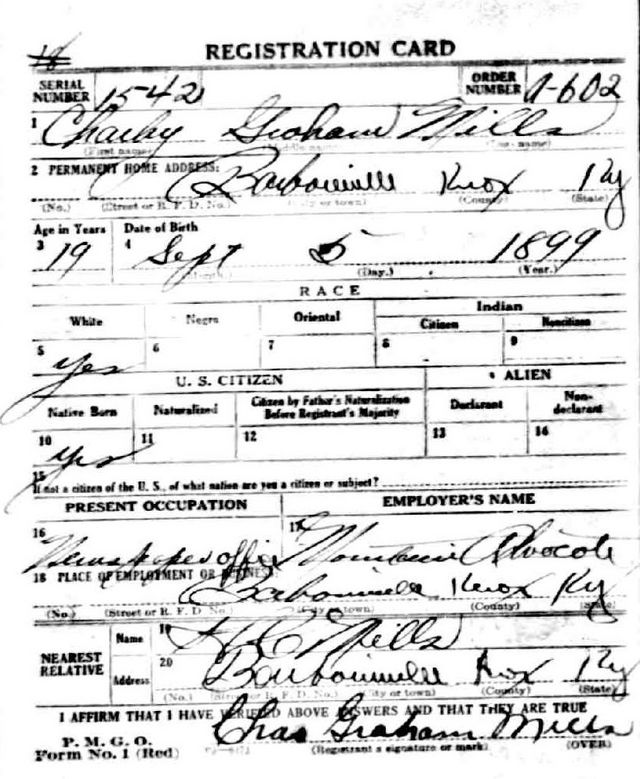 REGISTRATION CARD
SERIAL NUMBER 1542 ORDER NUMBER A-602
1 Charley Graham Mills
(First name) (Middle name) (Last name)
2 PERMANENT HOME ADDRESS: Barbourville Knox Ky
(No.) (Street or R. F. D. No.) (City or town) (County) (State)
Age in Years Date of Birth
3 19 4 Sept 5 1899
(Month.) (Day.) (Year.)
RACE
White Negro Oriental Indian
Citizen Noncitizen
5 Yes 6 7 8 9
U. S. CITIZEN ALIEN
Native Born Naturalized Citizen by Father's Naturalization Before Registrant's Majority Declarant Non-declarant
10 Yes 11 12 13 14
15
If not a citizen of the U. S., of what nation are you a citizen or subject?
PRESENT OCCUPATION EMPLOYER'S NAME
16 Newspaper office 17 Advocate
18 PLACE OF EMPLOYMENT OR BUSINESS:
Barbourville Knox Ky
(No.) (Street or R. F. D. No.) (City or town) (County) (State)
NEAREST RELATIVE
Name 19 Mills
Address 20 Barbourville Knox Ky
(No.) (Street or R. F. D. No.) (City or town) (County) (State)
I AFFIRM THAT I HAVE VERIFIED ABOVE ANSWERS AND THAT THEY ARE TRUE
P. M. G. O.
Form No. 1 (Red)
Chas Graham Mills
(Registrant's signature or mark) (OVER)